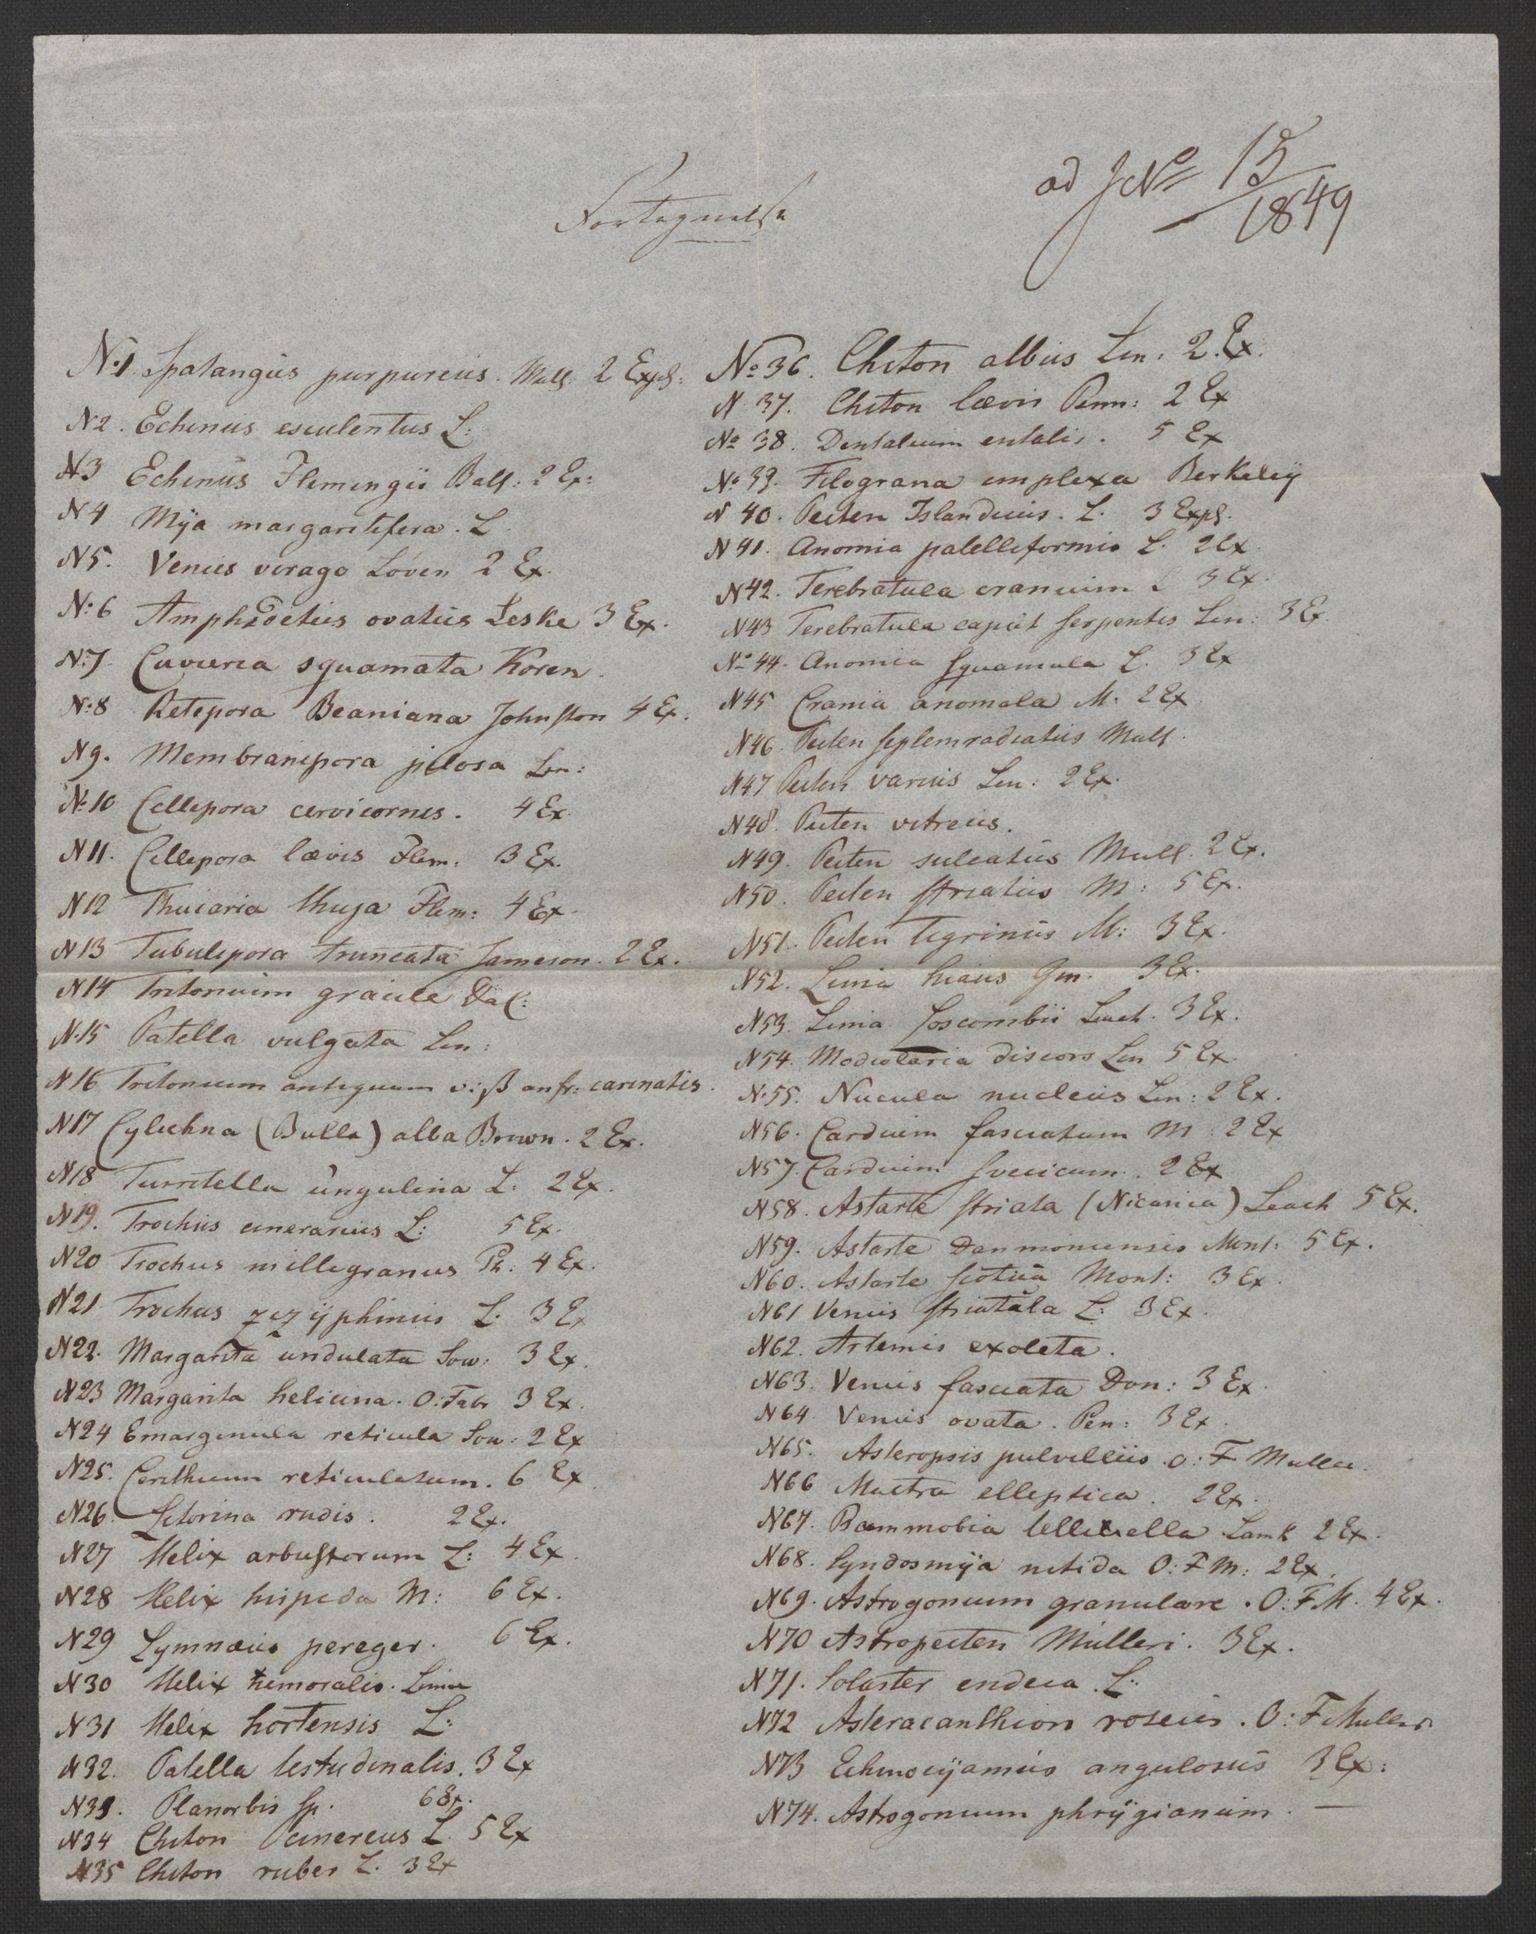 ad J No 15/1849
Fortegnelse
N.1 Spatangus purpureus. Mull: 2 Expl:
N2. Echinus esculentus L:
N3 Echinus Flemingii Ball: 2 Ex:
N4 Mÿa margaritifera. L
N5. Venus virago Lóven 2 Ex.
N:6 Amphidetus ovatus Leske 3 Ex.
N:7 Cuvieria squamata Koren.
N:8 Retepora Beaniana Johnston 4 Ex:
N9. Membranipora pilosa Lin:
N:10 Cellepora cervicornis. 4 Ex
N11. Cellepora lævis Flem: 3 Ex.
N12 Thuiaria thuja Flem: 4 Ex.
N13 Tubulipora truncata Jameson. 2 Ex.
N14 Tritonium gracile Dal:
N.15 Patella vulgata Lin:
N16 Tritonium antiquum v: β anfr: carinatis.
N17 Cylichna (Bulla) alba Brown. 2 Ex.
N18 Turritella ungulina L: 2 Ex.
N19. Trochus cinerarius L: 5 Ex.
N20 Trochus millegranus Ph: 4 Ex.
N21 Trochus zizÿphinus L. 3 Ex
N22. Margarita undulata Sow: 3 Ex.
N23 Margarita helicina. O: Fabr 3 Ex.
N24 Emarginula reticula Sow: 2 Ex
N25. Cerithium reticulatum. 6 Ex.
N26. Litorina rudis. 2 Ex.
N27 Helix arbustorum L: 4 Ex.
N28 Helix hispida M: 6 Ex.
N29 Lymnæus pereger. 6 Ex.
N30 Helix nemoralis. Linne
N31 Helix hortensis L:
N32. Patella testudinalis. 3 Ex
N33. Planorbis sp. 6 Ex.
N34 Chiton cinereus L. 5 Ex
N35 Chiton ruber L. 3 Ex
No 36. Chiton albus Lin. 2. Ex.
N 37. Chiton lævis Penn: 2 Ex
No 38. Dentalium entalis. 5 Ex
No 39. Filograna implexa Berkeleÿ
N 40. Pecten Islandicus. L. 3 Expl.
N 41. Anomia patelliformis L. 2 Ex.
N42. Terebratula cranium L 3 Ex.
N43 Terebratula caput serpentis Lin: 3 Ex
No 44. Anomia squamula L. 3 Ex
N45 Crania anomala M. 2 Ex
N46. Pecten septemradiatus Mull.
N47 Pecten varius Lin: 2 Ex.
N48. Pecten vitreus.
N49. Pecten sulcatus Mull. 2 Ex.
N50. Pecten striatus M: 5 Ex.
N51. Pecten Tigrinus M: 3 Ex.
N52. Lima hians Gm. 3 Ex.
N53. Lima Loscombii Leach. 3 Ex.
N54. Modiolaria discors Lin 5 Ex.
N.55. Nucula nucleus Lin: 2 Ex.
N56. Cardium fasciatum M: 2 Ex
N57. Cardium suecicum. 2 Ex
N58. Astarte striata (Nicania) Leach 5 Ex.
N59. Astarte Danmoniensis Mont: 5 Ex.
N60. Astarte scotica Mont: 3 Ex.
N61 Venus striatula L: 3 Ex.
N62. Artemis exoleta.
N63. Venus fasciata Don: 3 Ex.
N64. Venus ovata. Pen: 3 Ex.
N65. Asteropsis pulvillus. O: F Muller.
N66 Mactra elliptica. 2 Ex.
N67. Psammobia tellinella Lamk 2 Ex.
N68. Syndosmÿa nitida O: F M: 2 Ex.
N69. Astrogonium granulare. O: F. M. 4 Ex.
N70 Astropecten Mülleri. 3 Ex.
N71. Solaster endeca. L:
N72 Asteracanthion roseus. O: F Muller
N73 Echinocÿamus angulosus 3 Ex:
N74. Astrogonium phrÿgianum. —